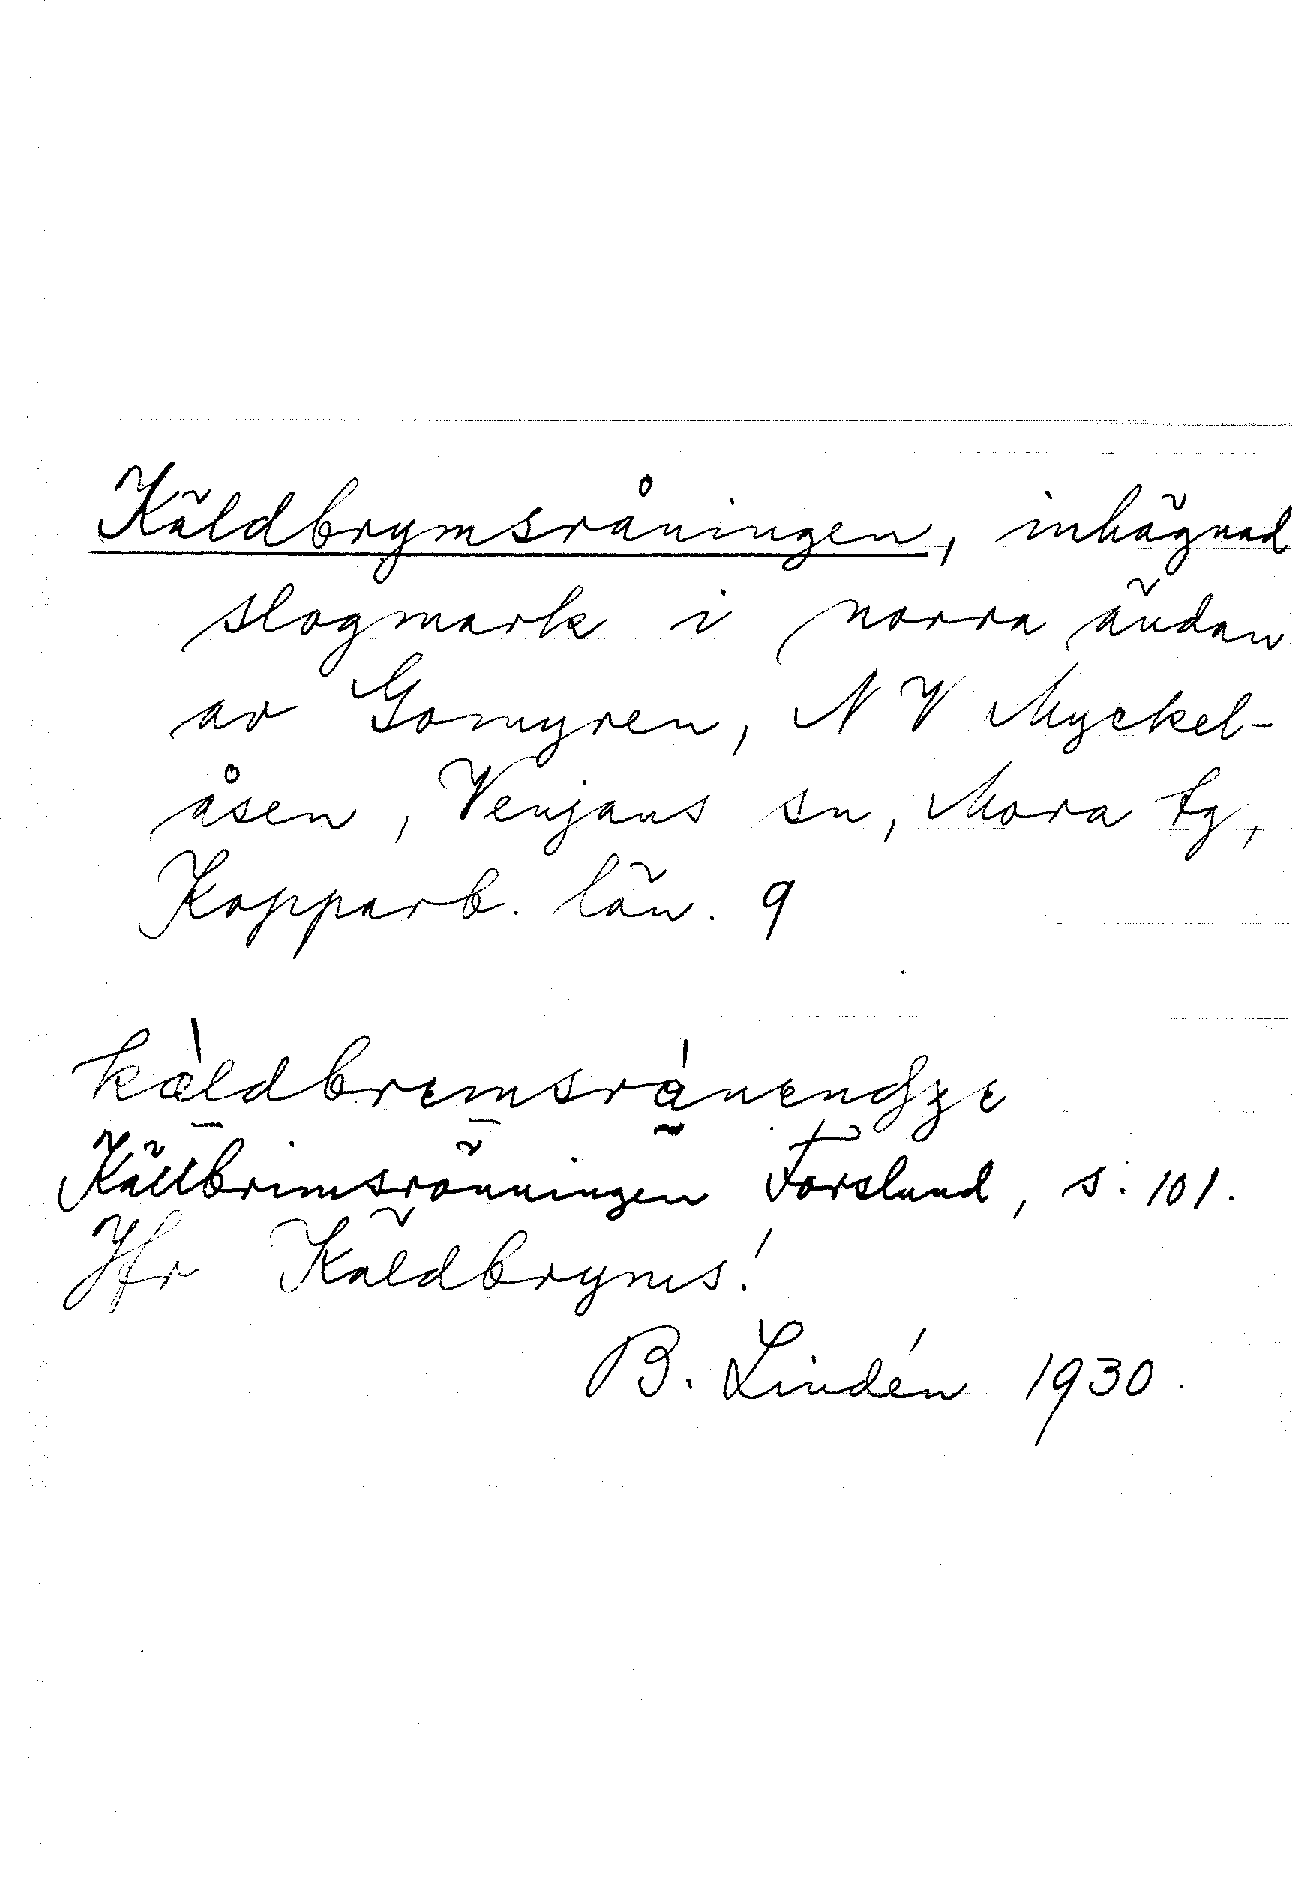 Käldbrymsråningen, inhägnad
slogmark i norra ändan
av Gomyren, NV Myckel-
åsen, Venjans sn, Mora tg,
Kopparb. län. 9
Källbrimsrönningen Forslund, s. 101.
Jfr Käldbryms!
B. Lindén 1930.